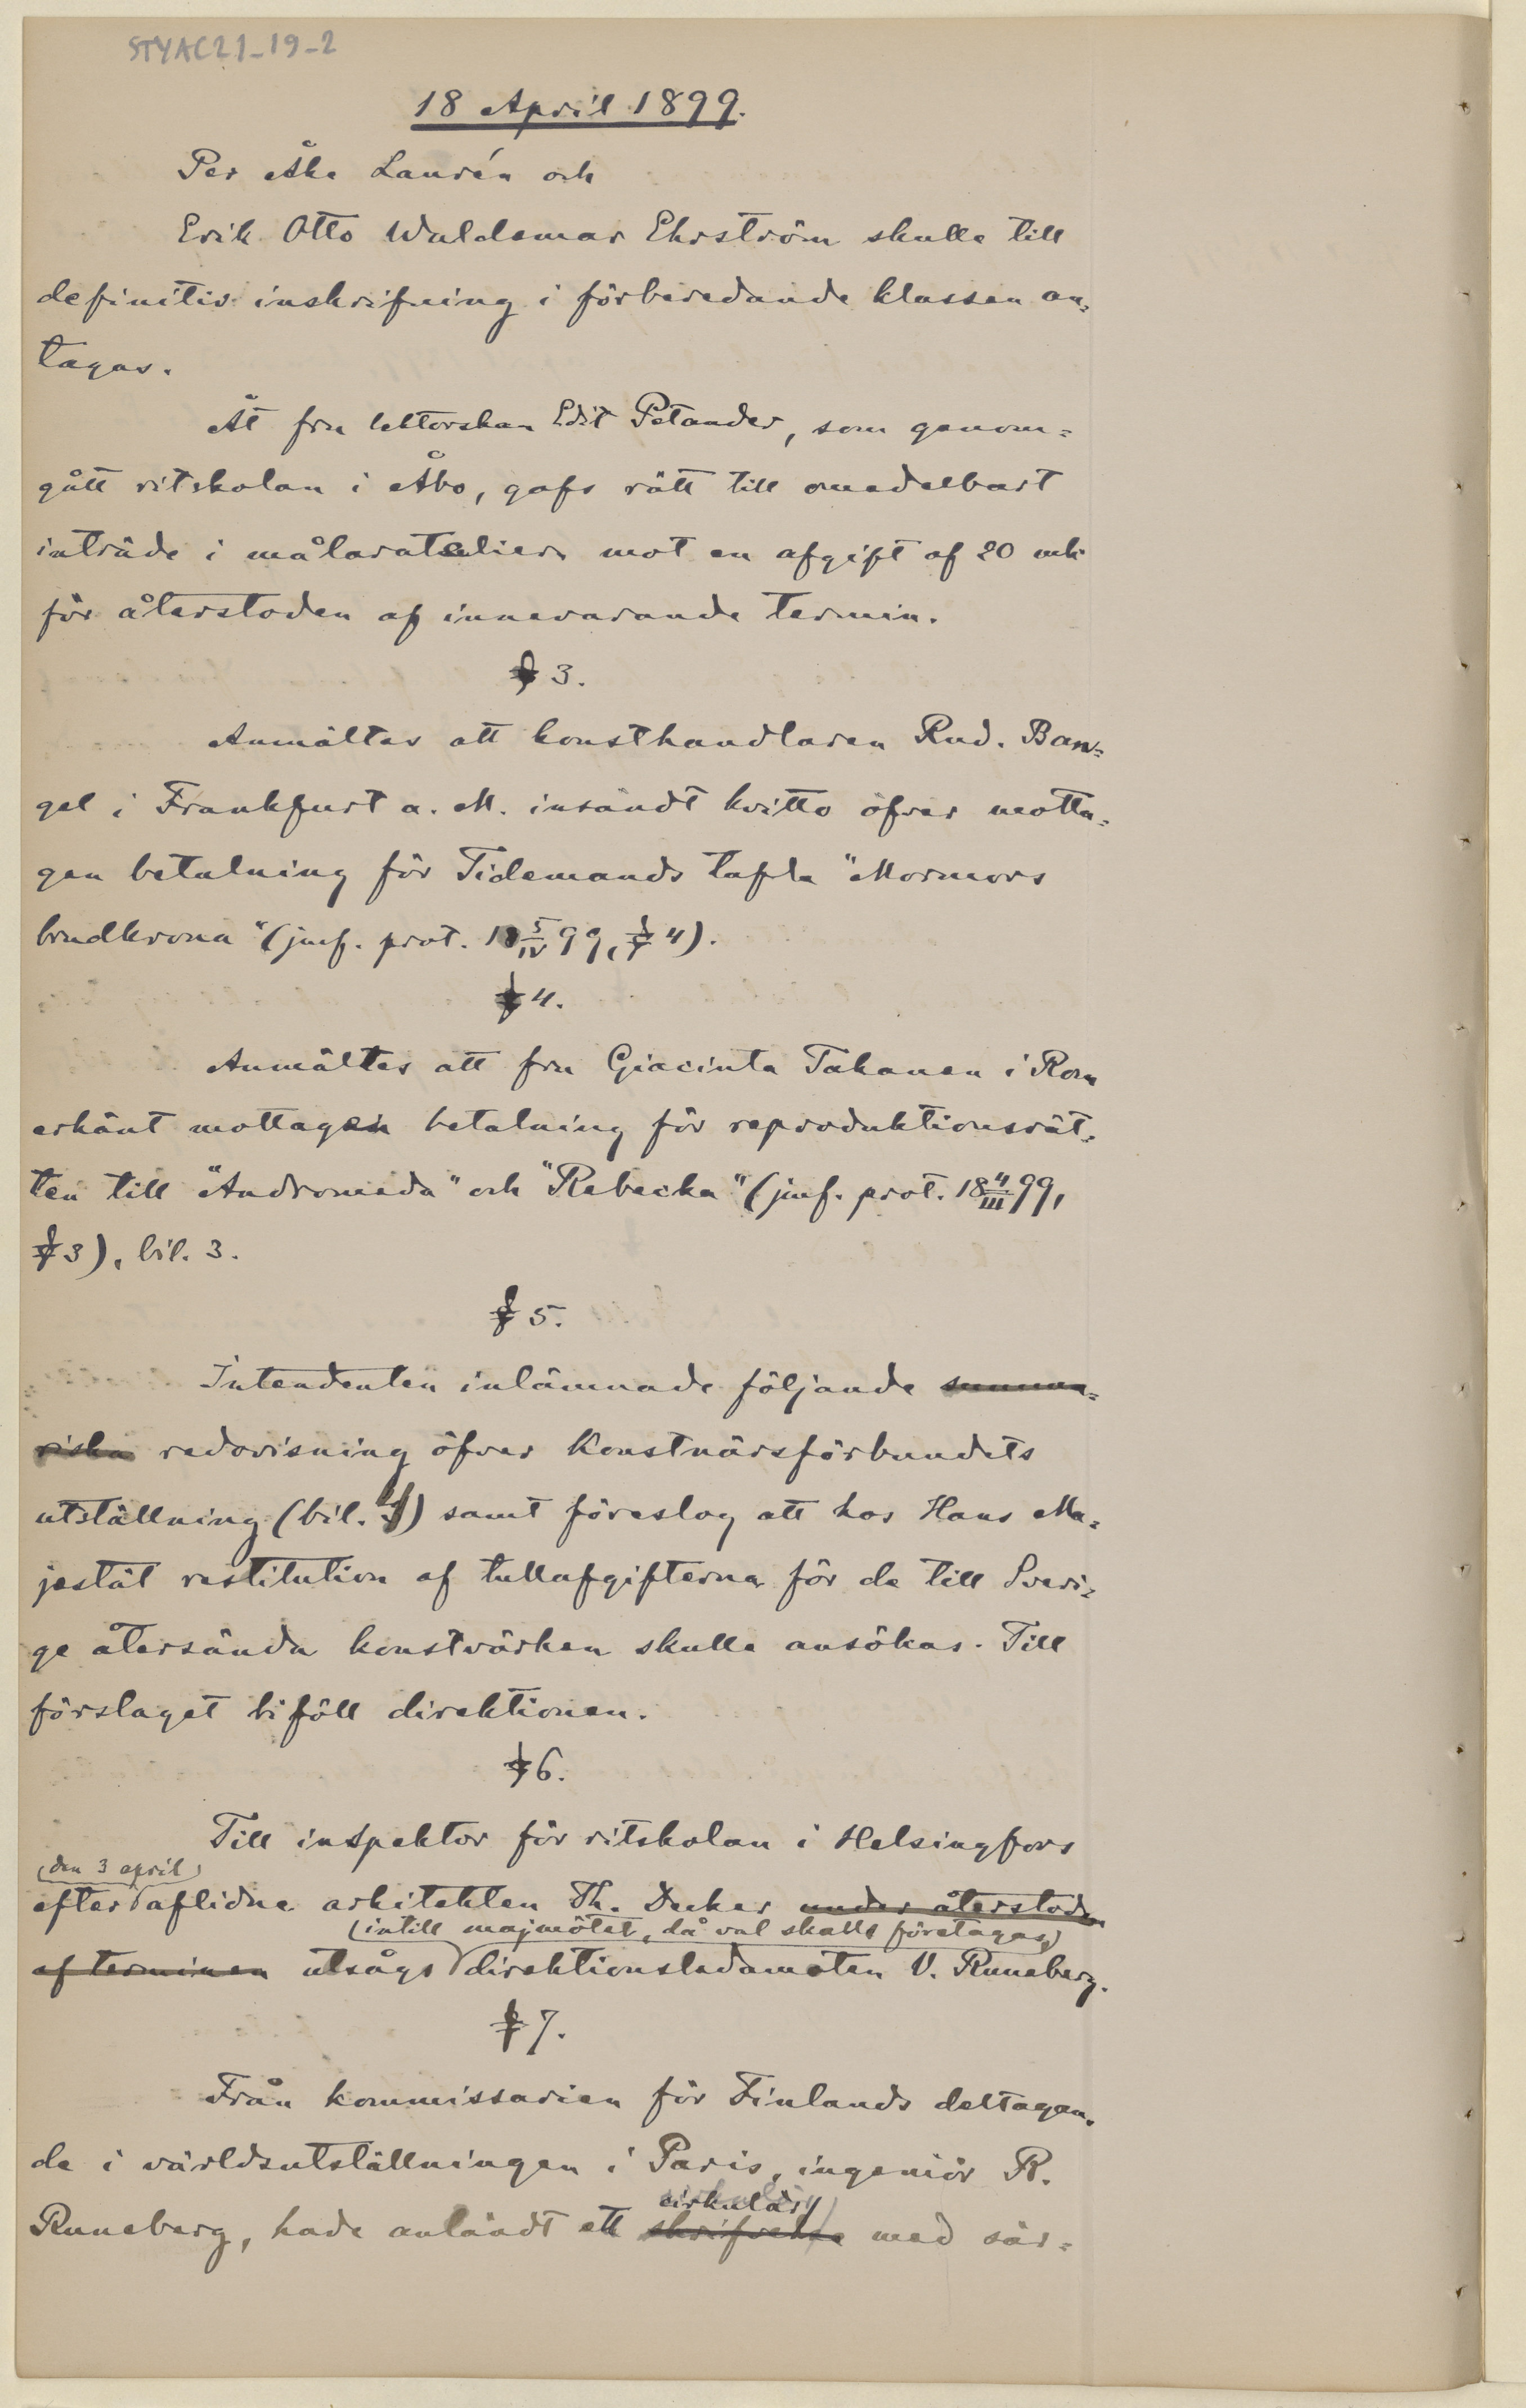 STYAC21_19_2
18 April 1899.
Per Åke Laurén och
Erik Otto Waldemar Ehrström skulle till
definitiv inskrifning i förberedande klassen an=
tagas.
Åt fru lektorskan Edit Petander, som genom=
gått ritskolan i Åbo, gafs rätt till omedelbart
inträde i målarateliern mot en afgift af 20 mk
för återstoden af innevarande termin.
§ 3.
Anmältes att konsthandlaren Rud. Ban=
gel i Frankfurt a. M. insändt kvitto öfver motta=
gen betalning för Tidemands tafla "Mormors
brudkrona" (jmf. prot. 18 5/IV 99, § 4).
§ 4.
Anmältes att fru Giacinta Takanen i Rom
erkänt mottagen betalning för reproduktionsrät=
ten till "Andromeda" och "Rebecka" (jmf. prot. 18 4/III 99,
§ 3), bil. 3.
§ 5.
Intendenten inlämnade följande summa=
riska redovisning öfver Konstnärsförbundets
utställning (bil. 4) samt föreslog att hos Hans Ma=
jestät restitution af tullafgifterna för de till Sveri=
ge återsända konstvärken skulle ansökas. Till
förslaget biföll direktionen.
§ 6.
Till inspektor för ritskolan i Helsingfors
(den 3 april)
efter aflidne arkitekten Th. Decker under återstoden
(intill majmötet, då val skulle företagas)
af terminen utsågs direktionsledamoten V. Runeberg.
§ 7.
Från kommissarien för Finlands deltagan=
de i världsutställningen i Paris, ingeniör R.
cirkulär
Runeberg, hade anländt ett skrifvelse med sär=